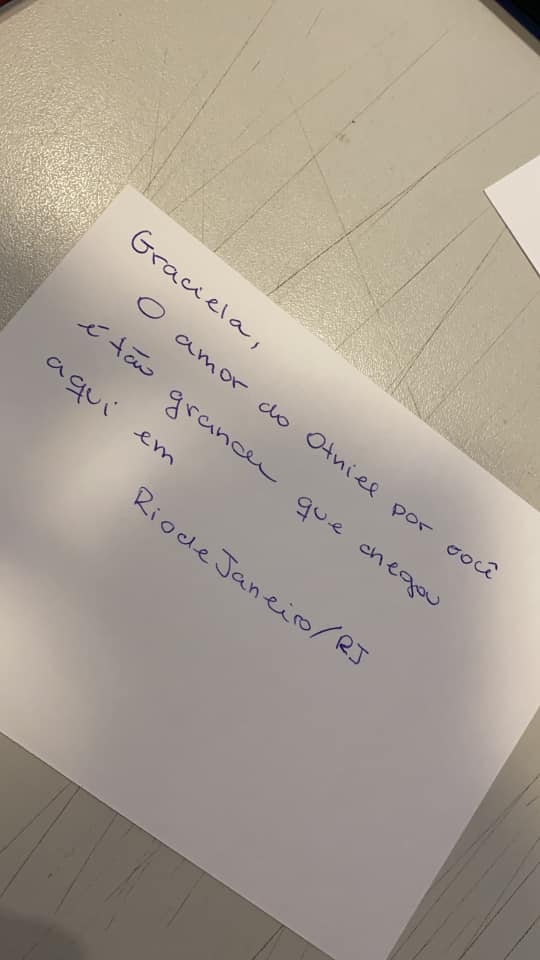 Graciela,
O amor do Otniel por você
é tão grande que chegou
aqui em
Rio de Janeiro/RJ